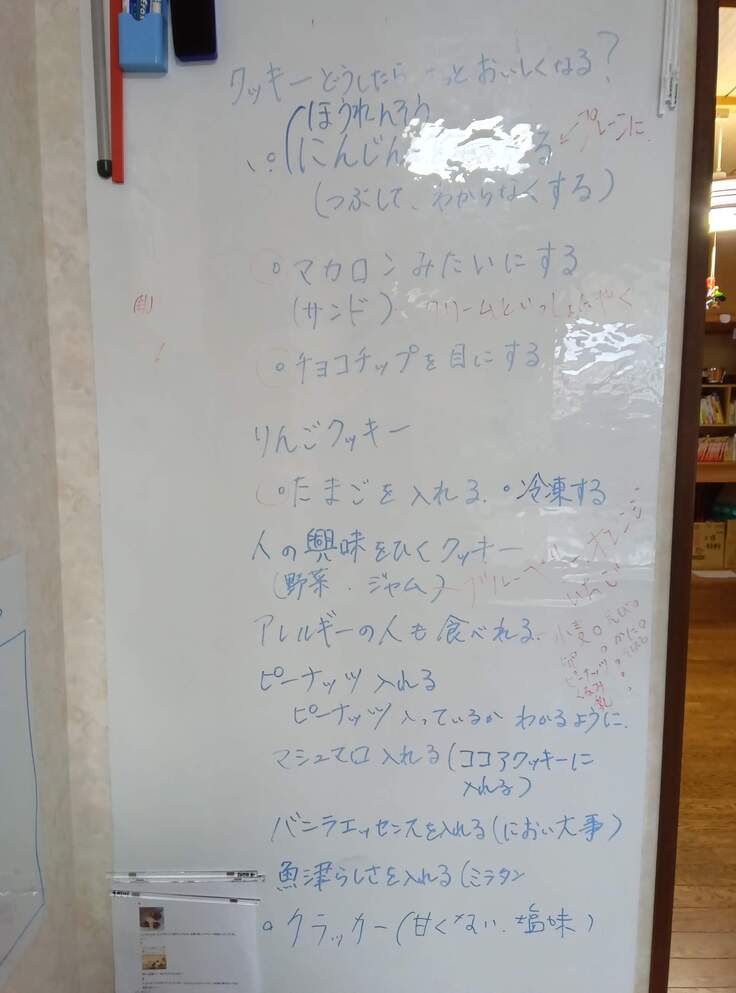 クッキーどうしたら っとおいしくなる?
ほうれんそう
にんじん る ←プレーンに
(つぶして、わからなくする)
マカロンみたいにする
(サンド) クリームといっしょにやく
チョコチップを目にする
りんごクッキー
たまごを入れる。冷凍する
人の興味をひくクッキー
(野菜.ジャム) ブルーベリー オレンジ
いちご
アレルギーの人も食べれる 小麦
卵
ピーナッツ
くるみ
乳
ピーナッツ入れる
ピーナッツ入っているかわかるように
マシュマロ入れる(ココアクッキーに
入れる)
バニラエッセンスを入れる(におい大事)
魚津らしさを入れる(ミラタン
クラッカー(甘くない.塩味)